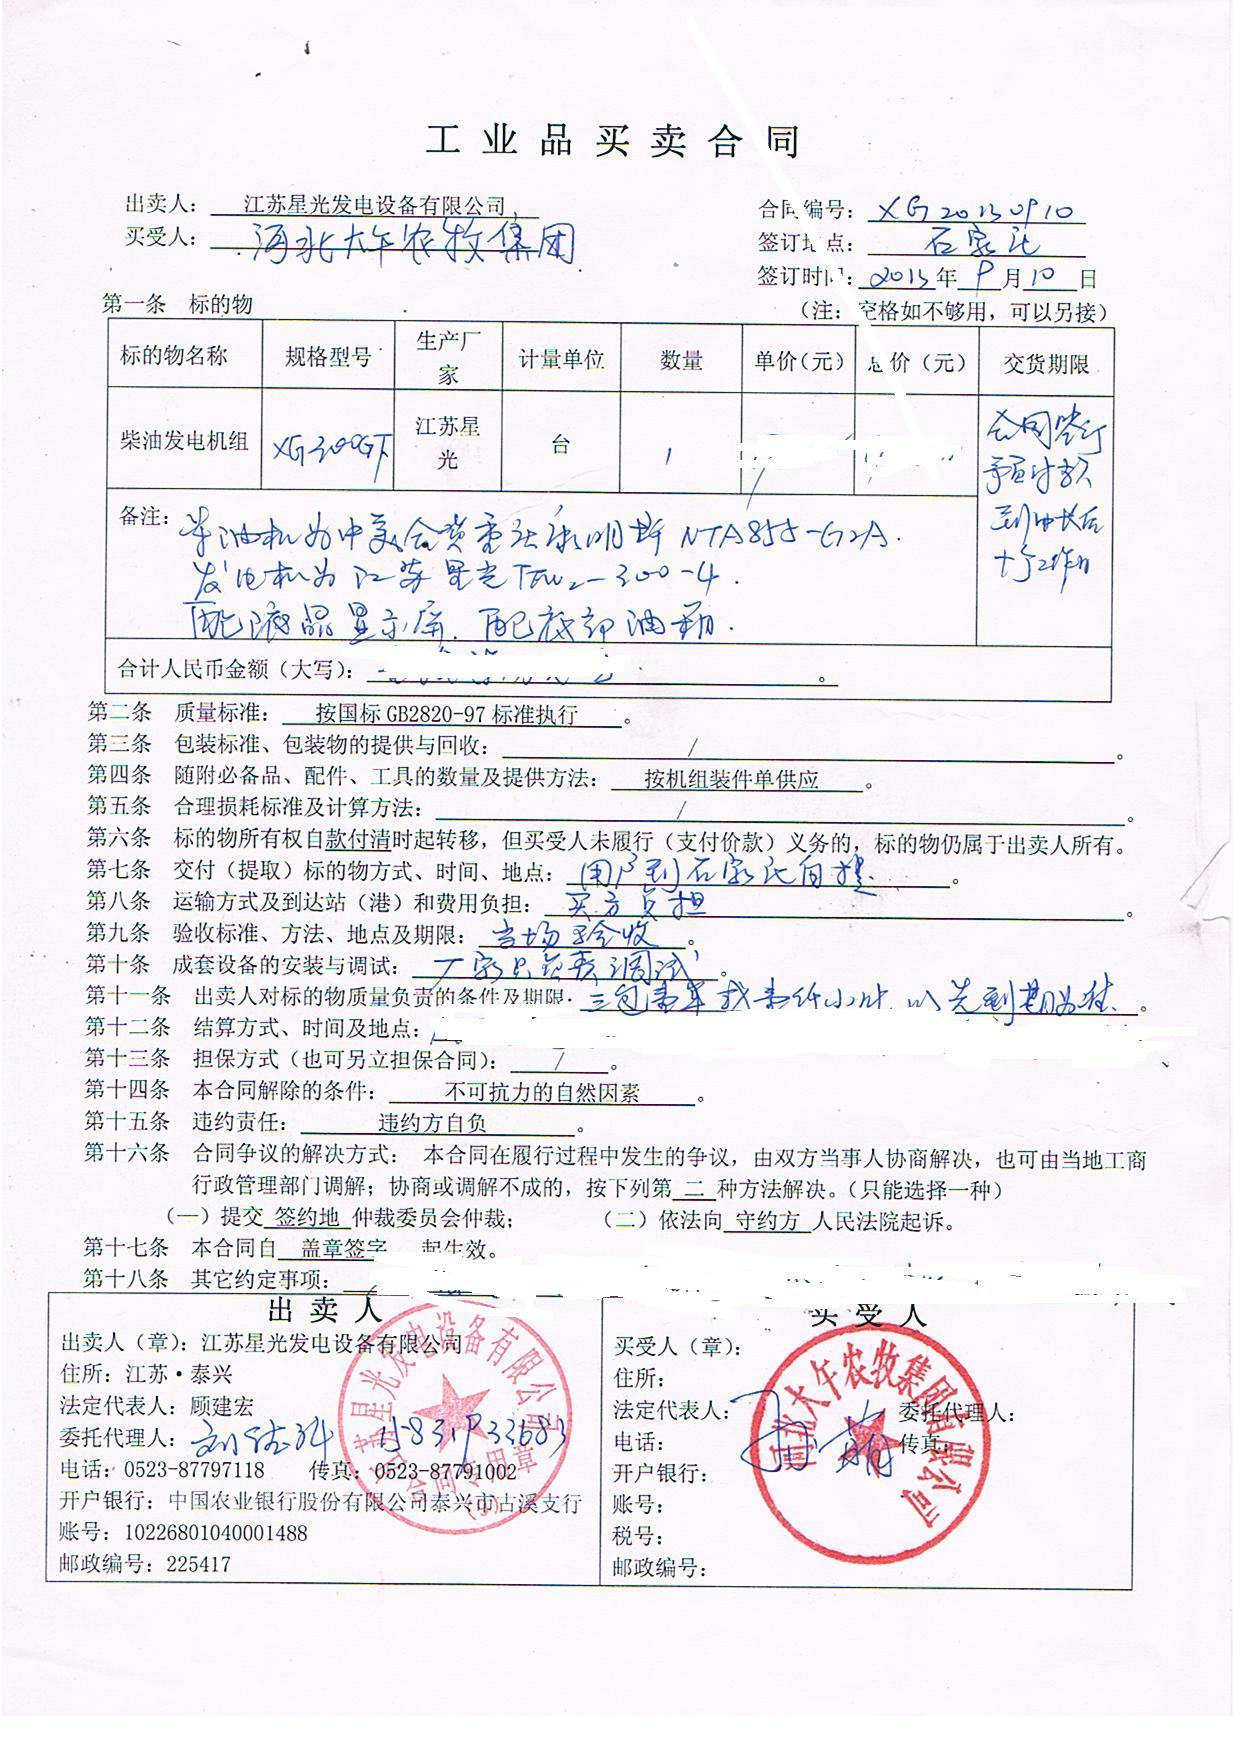 工业品买卖合同
出卖人： 江苏星光发电设备有限公司
买受人： 河北大午农牧集团
合同编号：XG20130910
签订地点： 石家庄
签订时间：2013年9月10日
第一条 标的物
（注：空格如不够用，可以另接）
标的物名称 规格型号 生产厂家 计量单位 数量 单价（元） 总价（元） 交货期限
柴油发电机组 XG300GF 江苏星光 台 1
合同签订
预付款
到帐后
十个工作日
备注：柴油机为中美合资重庆康明斯 NTA855-G2A.
发电机为江苏星光TFW2-300-4.
配液晶显示屏.配底部油箱.
合计人民币金额（大写）：
第二条 质量标准： 按国标 GB2820-97 标准执行 。
第三条 包装标准、包装物的提供与回收： / 。
第四条 随附必备品、配件、工具的数量及提供方法： 按机组装件单供应 。
第五条 合理损耗标准及计算方法： / 。
第六条 标的物所有权自款付清时起转移，但买受人未履行（支付价款）义务的，标的物仍属于出卖人所有。
第七条 交付（提取）标的物方式、时间、地点： 用户到石家庄自提 。
第八条 运输方式及到达站（港）和费用负担： 买方负担 。
第九条 验收标准、方法、地点及期限： 当场验收 。
第十条 成套设备的安装与调试： 厂家只负责调试 。
第十一条 出卖人对标的物质量负责的条件及期限： 三包壹年或壹仟小时 以先到期为准 。
第十二条 结算方式、时间及地点：
第十三条 担保方式（也可另立担保合同）： / 。
第十四条 本合同解除的条件： 不可抗力的自然因素 。
第十五条 违约责任： 违约方自负 。
第十六条 合同争议的解决方式： 本合同在履行过程中发生的争议，由双方当事人协商解决，也可由当地工商
行政管理部门调解；协商或调解不成的，按下列第 二 种方法解决。（只能选择一种）
（一）提交 签约地 仲裁委员会仲裁； （二）依法向 守约方 人民法院起诉。
第十七条 本合同自 盖章签字 起生效。
第十八条 其它约定事项：
出卖人
出卖人（章）：江苏星光发电设备有限公司
住所：江苏·泰兴
法定代表人：顾建宏
委托代理人：
电话：0523-87797118 传真：0523-87791002
开户银行：中国农业银行股份有限公司泰兴市古溪支行
账号：10226801040001488
邮政编号：225417
江苏星光发电设备有限公司
合同专用章
买受人
买受人（章）：
住所：
法定代表人： 委托代理人：
电话： 传真：
开户银行：
账号：
税号：
邮政编号：
河北大午农牧集团有限公司